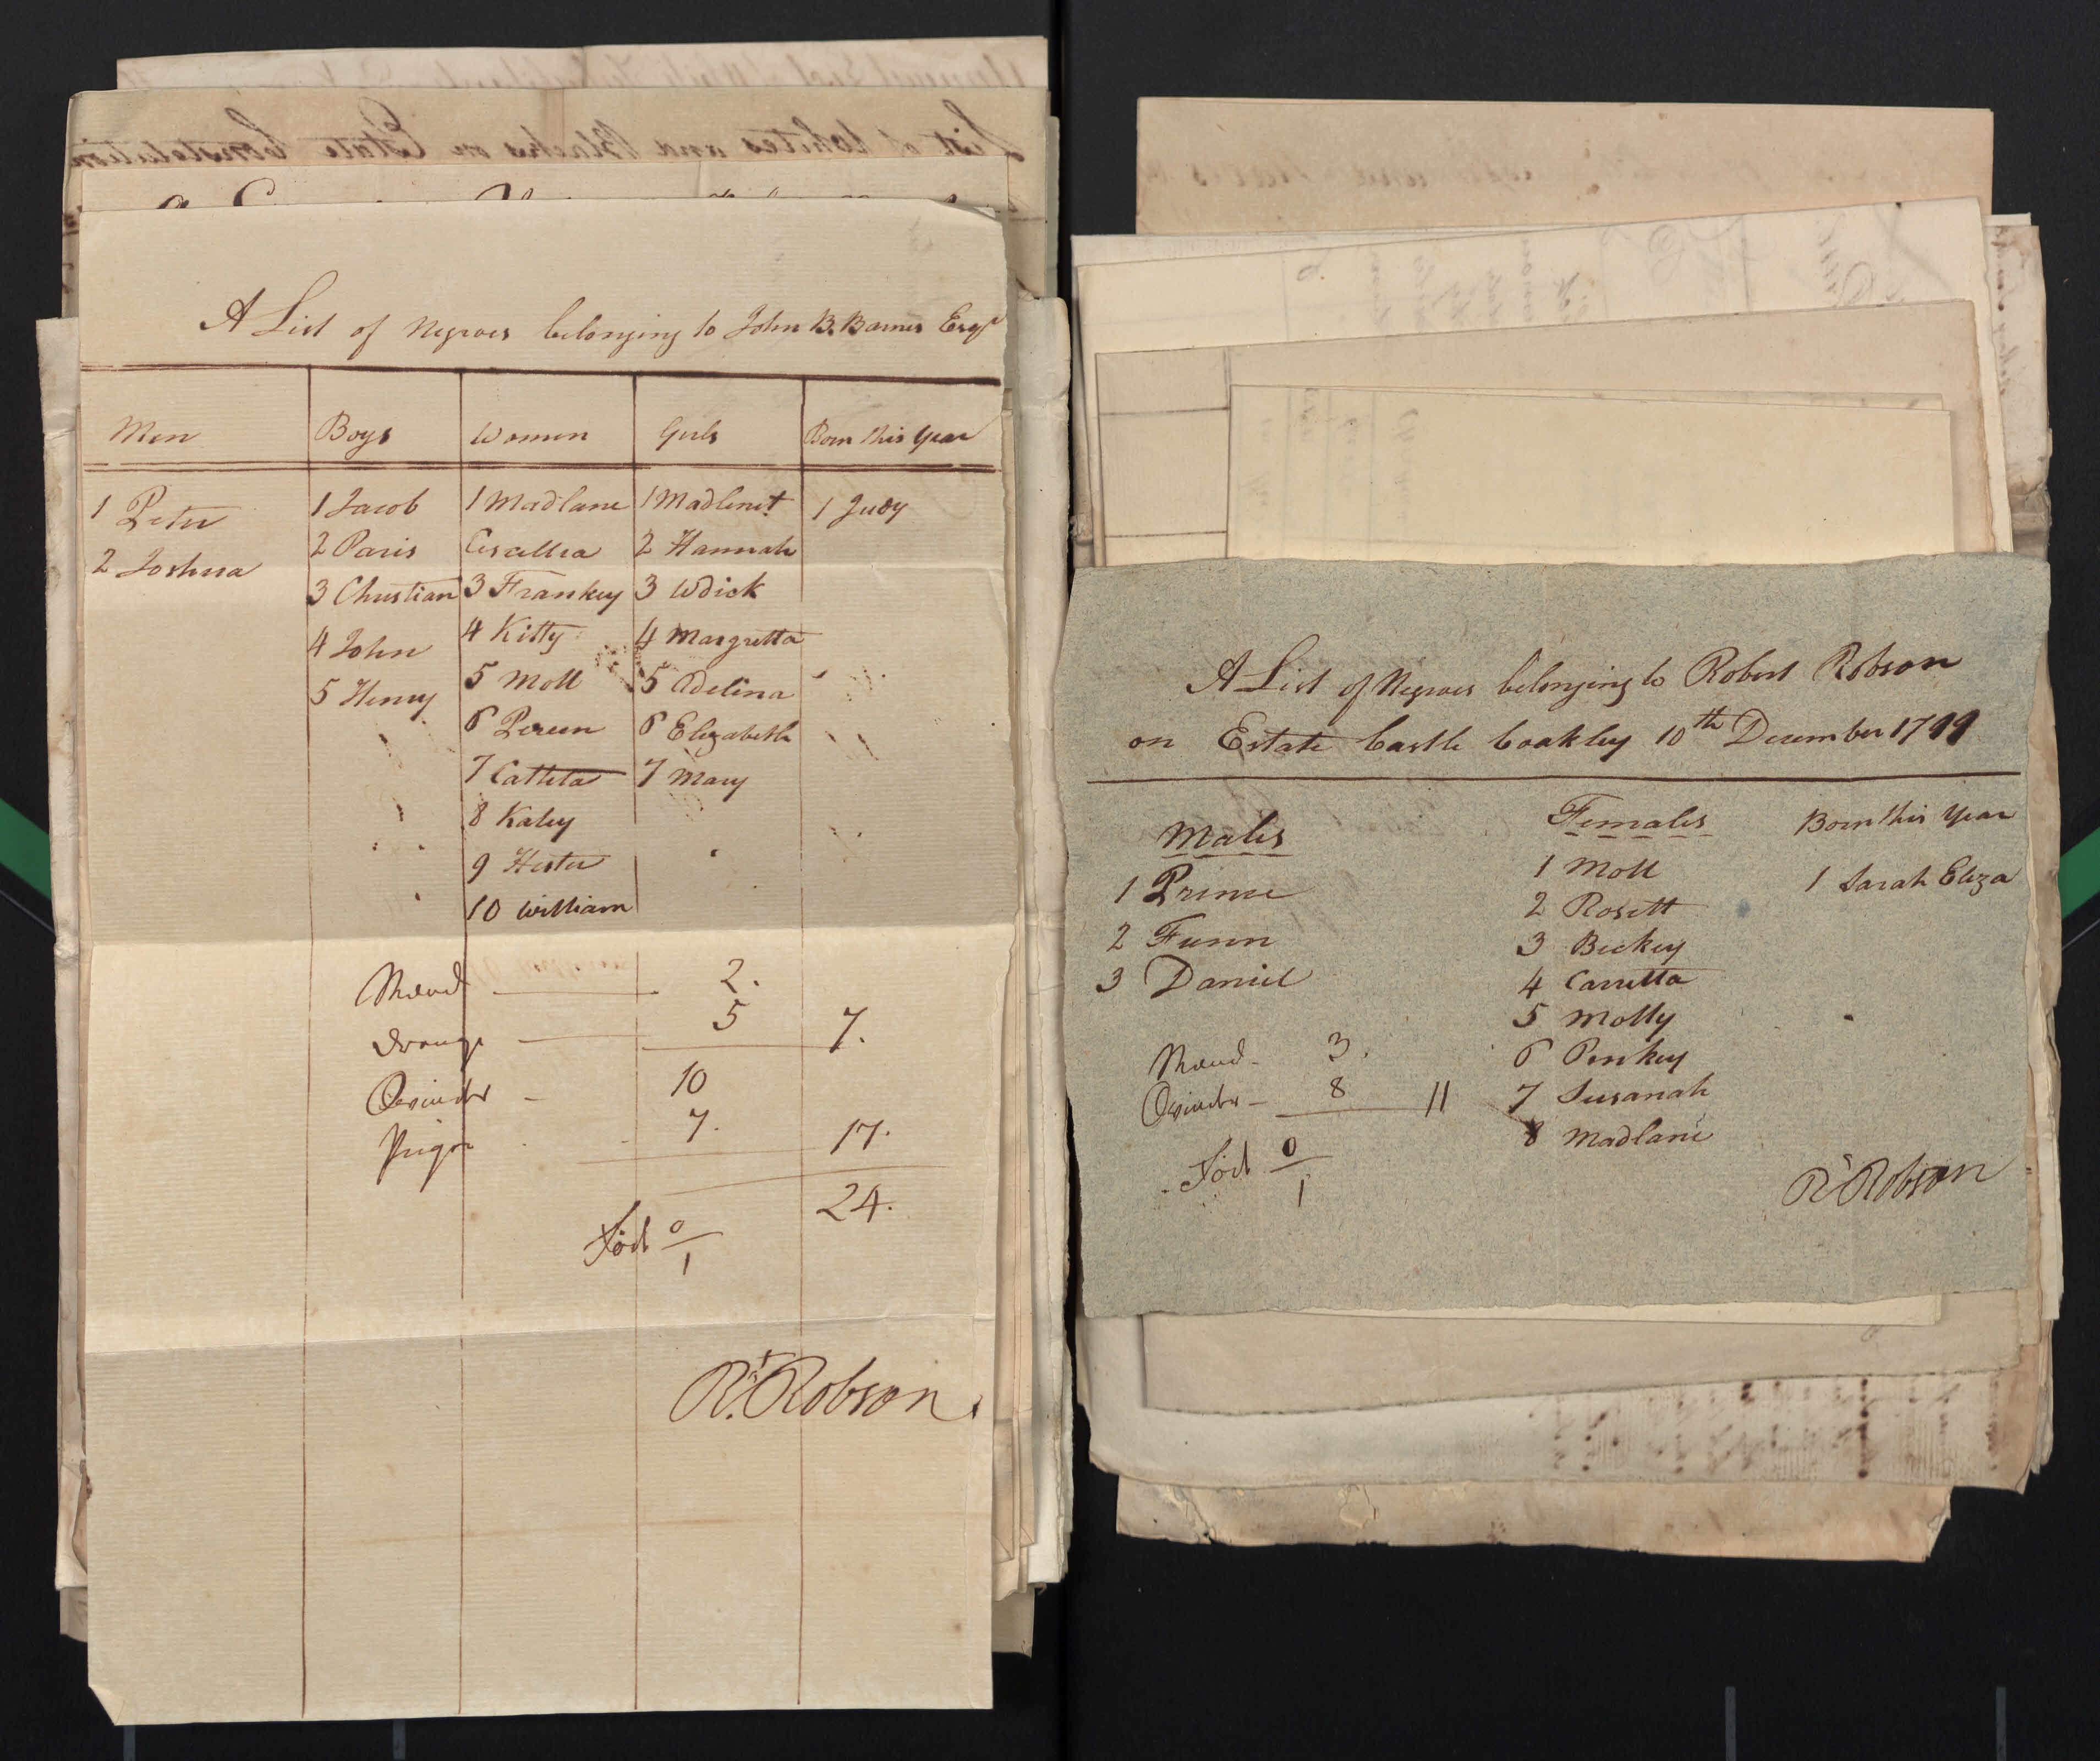 List of Whites and Blacks on Estate Constelation
A List of Negroes belonging to John B. Barnes Esqr
Men Boys Women Girls Born this Year
1 Peter 1 Jacob 1 Madlane 1 Madlenet 1 Judy
2 Joshua 2 Paris 2 Hannah
3 Christian 3 Frankey 3 Wdick
4 John 4 Kitty 4 Margretta
5 Henry 5 Moll 5 Adelina
6 Pereen 6 Elizabeth
7 Catteta 7 Mary
8 Katey
9 Hester
10 William
Mænd 2.
Drenge 5 7.
Qvinder 10
Piger 7. 17.
24.
Född 0
1
Rt. Robson
A List of Negroes belonging to Robert Robson
on Estate Castle Coakley 10th December 1799
Males Females Born this Year
1 Prince 1 Moll 1 Sarah Eliza
2 Funn 2 Rosett
3 Daniel 3 Beckey
4 Carretta
5 Molly
Mænd 3. 6 Penkey
Qvinder 8 11 7 Susanah
8 Madlane
Född 0
1
Rt Robson